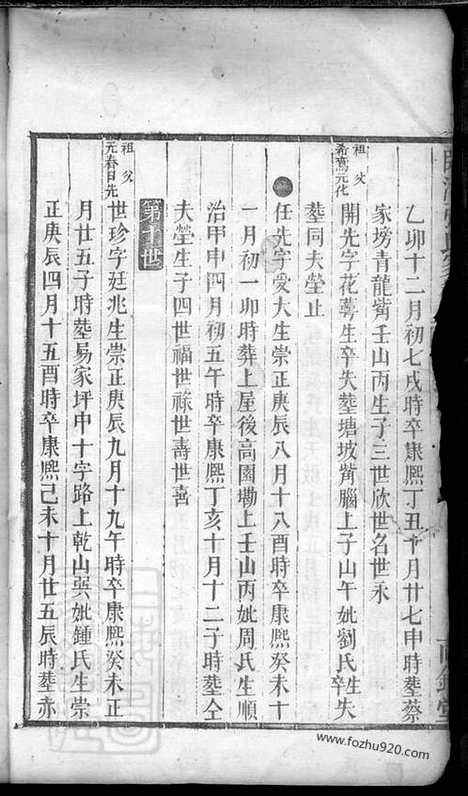 乙卯十二月初七戌時卒康熙丁丑十月廿七申時塟蔡
家塝青龍觜壬山丙生子三世欣世名世永
祖 父
希騫元化
開先字花蕚生卒失塟塘坡觜腦上子山午妣劉氏生卒失
塟同夫塋止
任先字受大生崇正庚辰八月十八酉時卒康熙癸未十
一月初一卯時葬上屋後高園墈上壬山丙妣周氏生順
治甲申四月初五午時卒康熙丁亥十月十二子時塟仝
夫塋生子四世福世祿世壽世善
第十世
祖 父
元春日先
世珍字廷兆生崇正庚辰九月十九午時卒康熙癸未正
月廿五子時塟易家坪申十字路上乾山巽妣鍾氏生崇
正庚辰四月十五酉時卒康熙己未十月廿五辰時塟亦
www.fozhu920.com